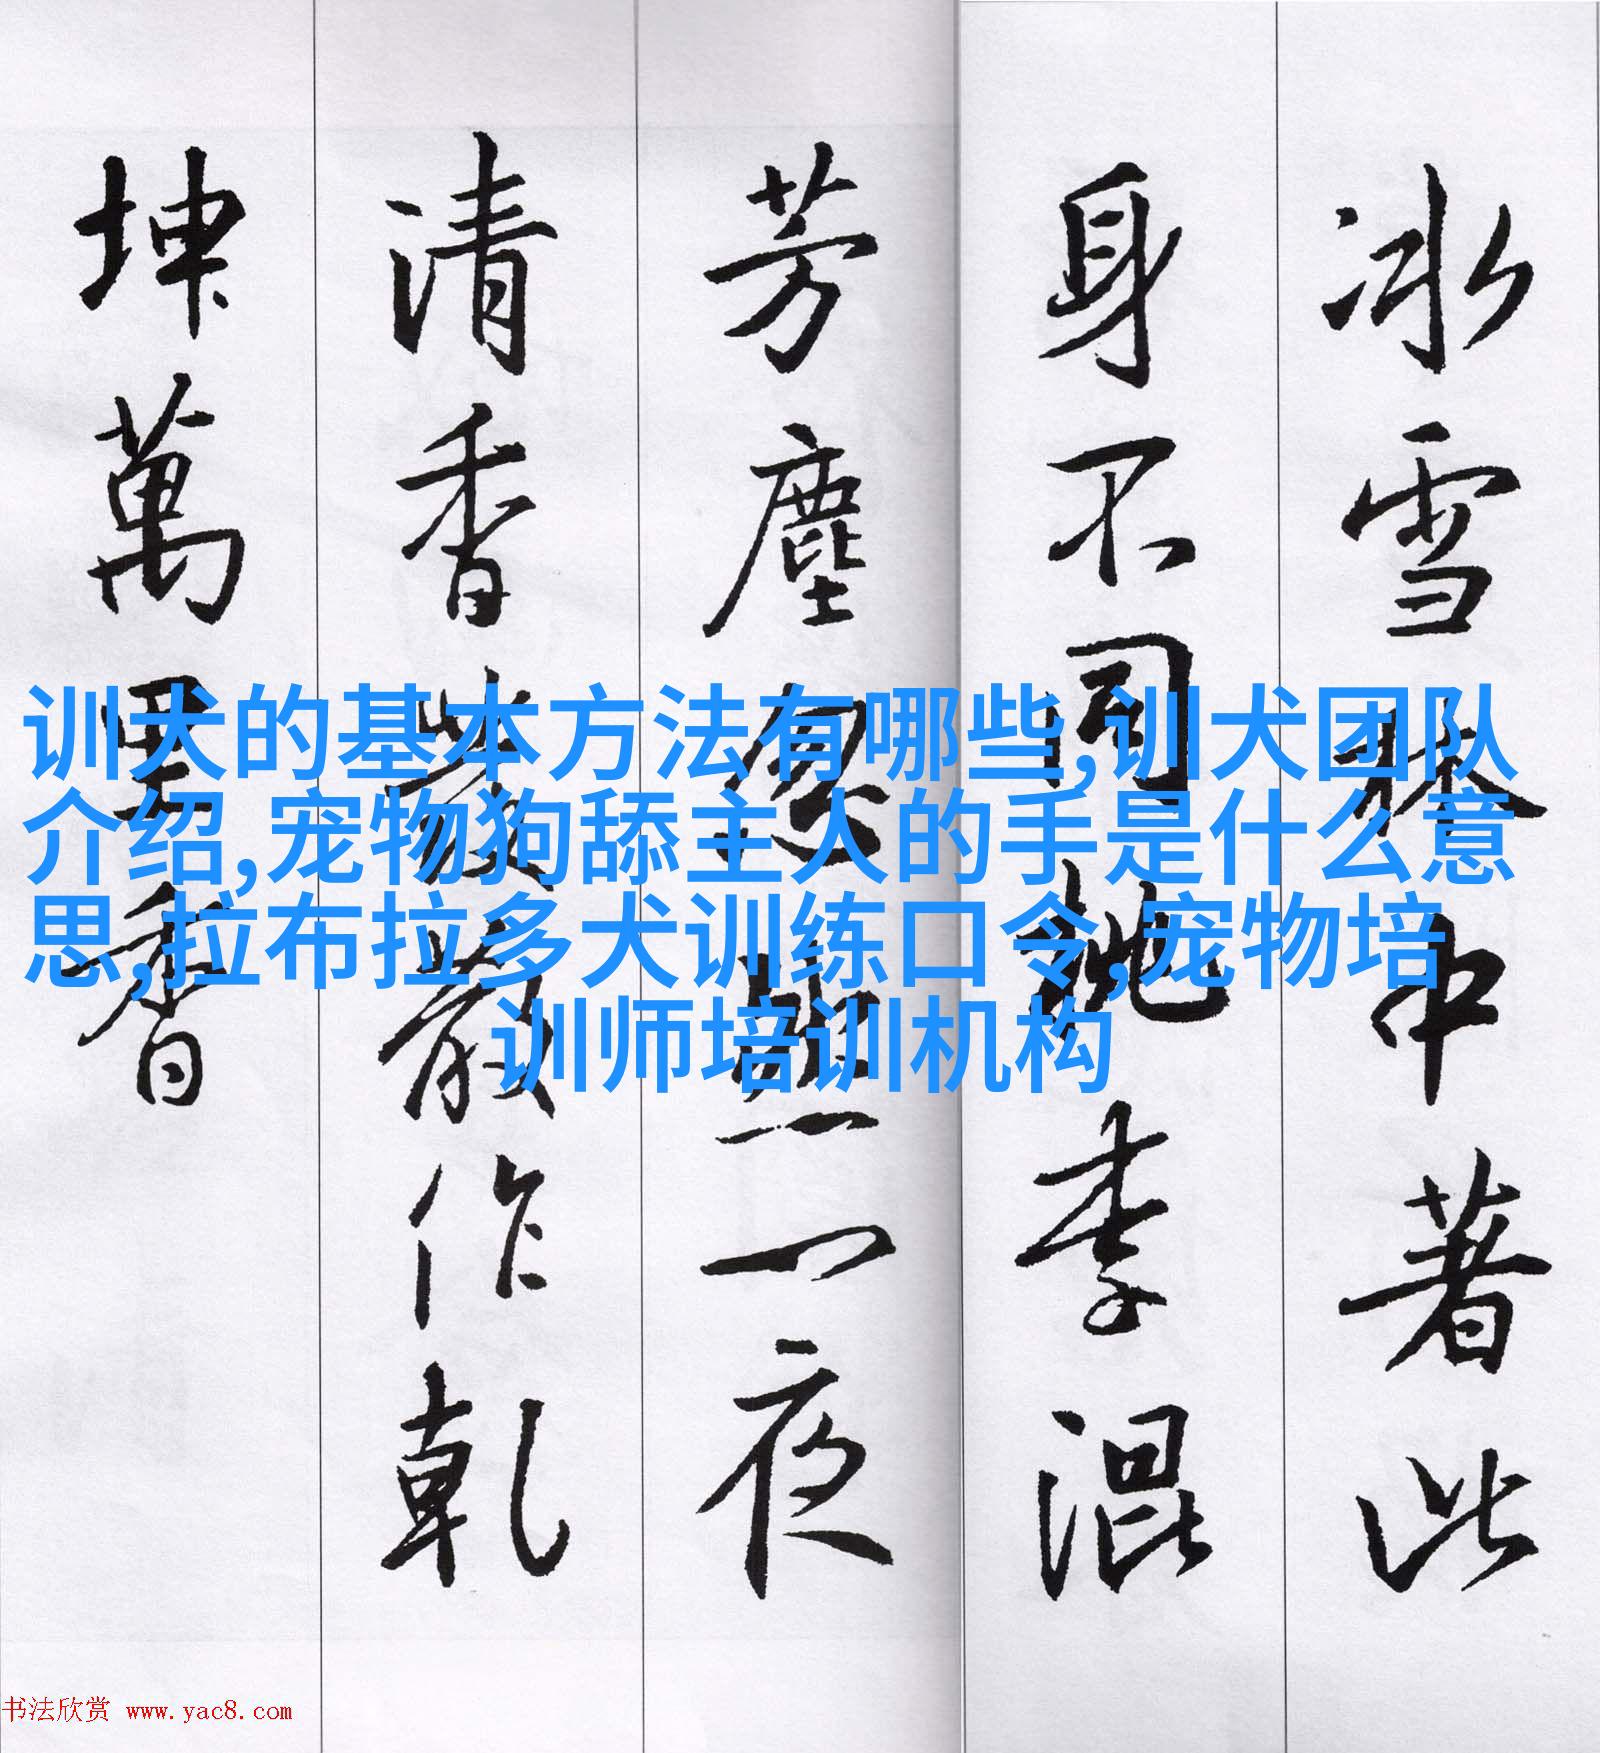 冰雪林中著此
身不同桃李混
芳塵忽然一夜
清香發散作乾
坤萬里香
训犬的基本方法有哪些,训犬团队
介绍,宠物狗舔主人的手是什么意
思,拉布拉多犬训练口令,宠物培
训师培训机构
书法欣赏 www.yac8.com